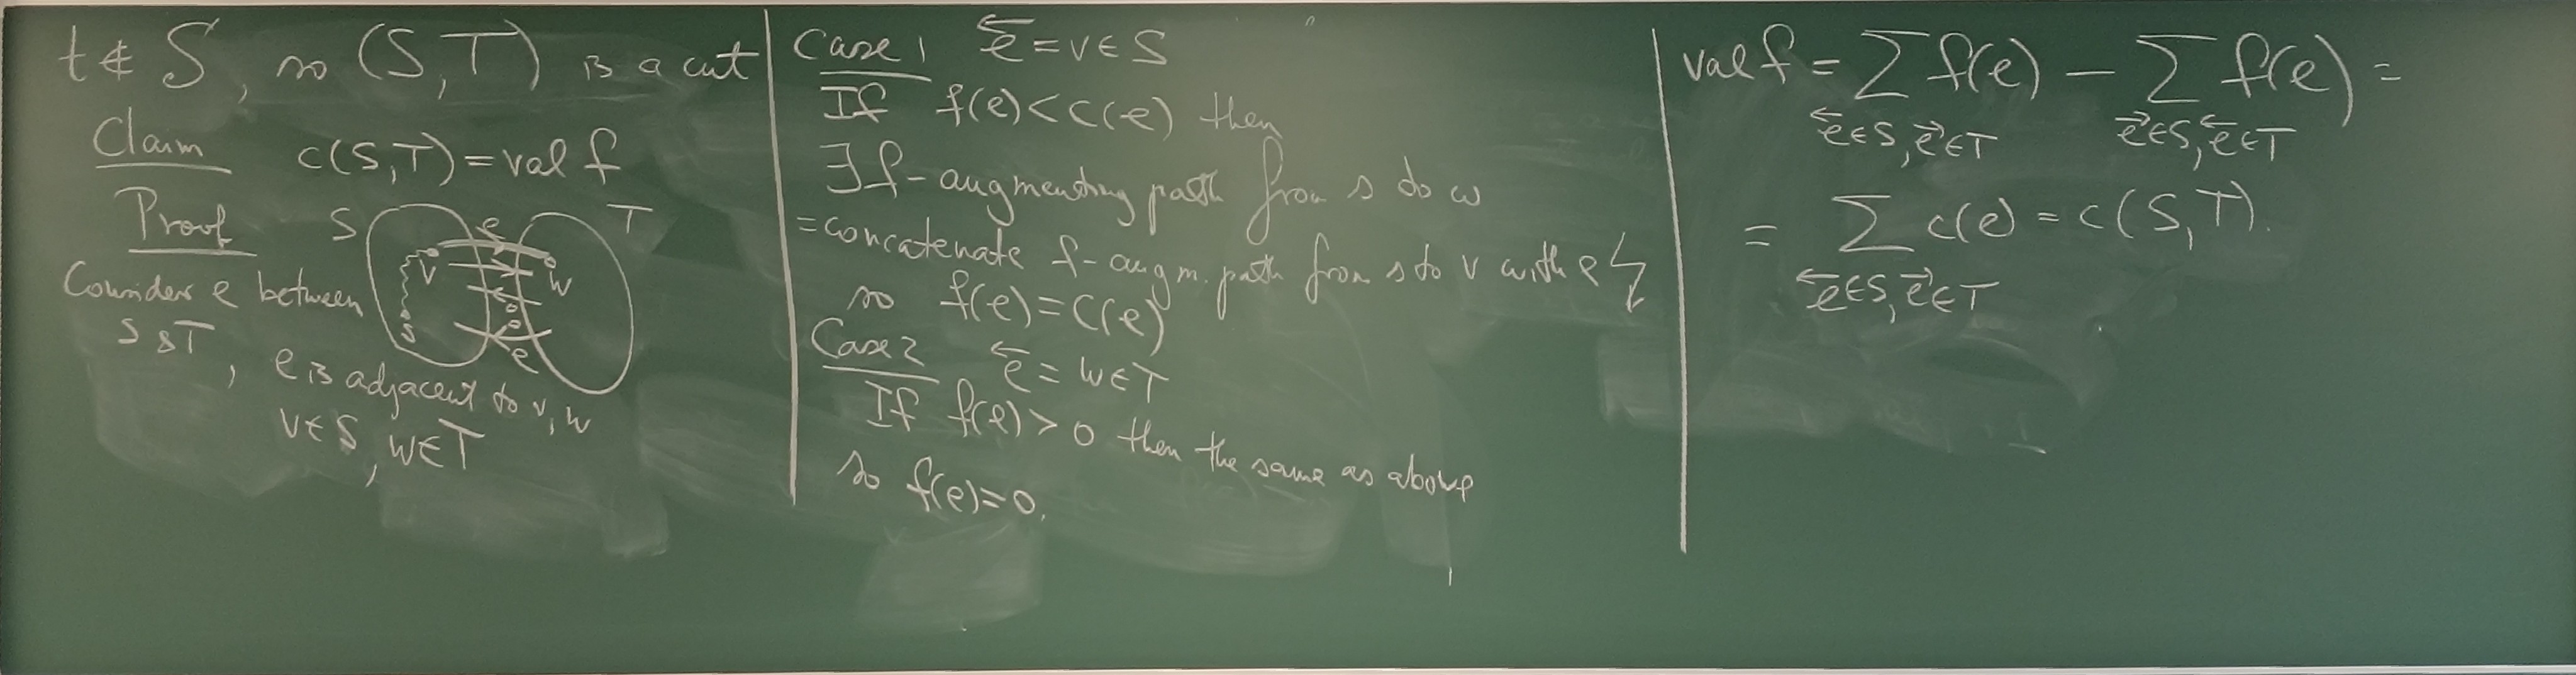 t ∉ S, so (S,T) is a cut
Claim c(S,T) = val f
Proof
S e T
v w
s
e
Consider e between
S & T, e is adjacent to v, w
v ∈ S, w ∈ T
Case 1 e⃖ = v ∈ S
If f(e) < c(e) then
∃ f-augmenting path from s to w
= concatenate f-augm. path from s to v with e ↯
so f(e) = c(e)
Case 2 e⃖ = w ∈ T
If f(e) > 0 then the same as above
so f(e) = 0.
val f = ∑ f(e) − ∑ f(e) =
e⃖ ∈ S, e⃗ ∈ T e⃗ ∈ S, e⃖ ∈ T
= ∑ c(e) = c(S,T).
e⃖ ∈ S, e⃗ ∈ T